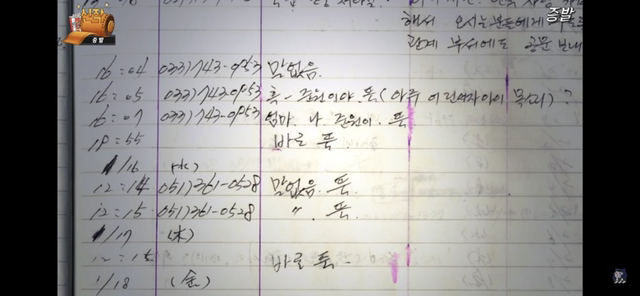 신작
증발
증발
해서 오시는분들에게
관계 부서에도 공문 보내
16:04 0331743-0953 말없음.
16:05 0331743-0953 흑- 준원이야 뚝 (아주 어린여자아이 목소리) ?
16:07 0331743-0953 엄마. 나. 준원이. 뚝
19:55 바로 뚝
1/16 (水)
12:14 0517361-0528 말없음. 뚝.
12:15 0517361-0528 〃. 뚝.
1/17 (木)
바로 뚝-
1/18 (金)